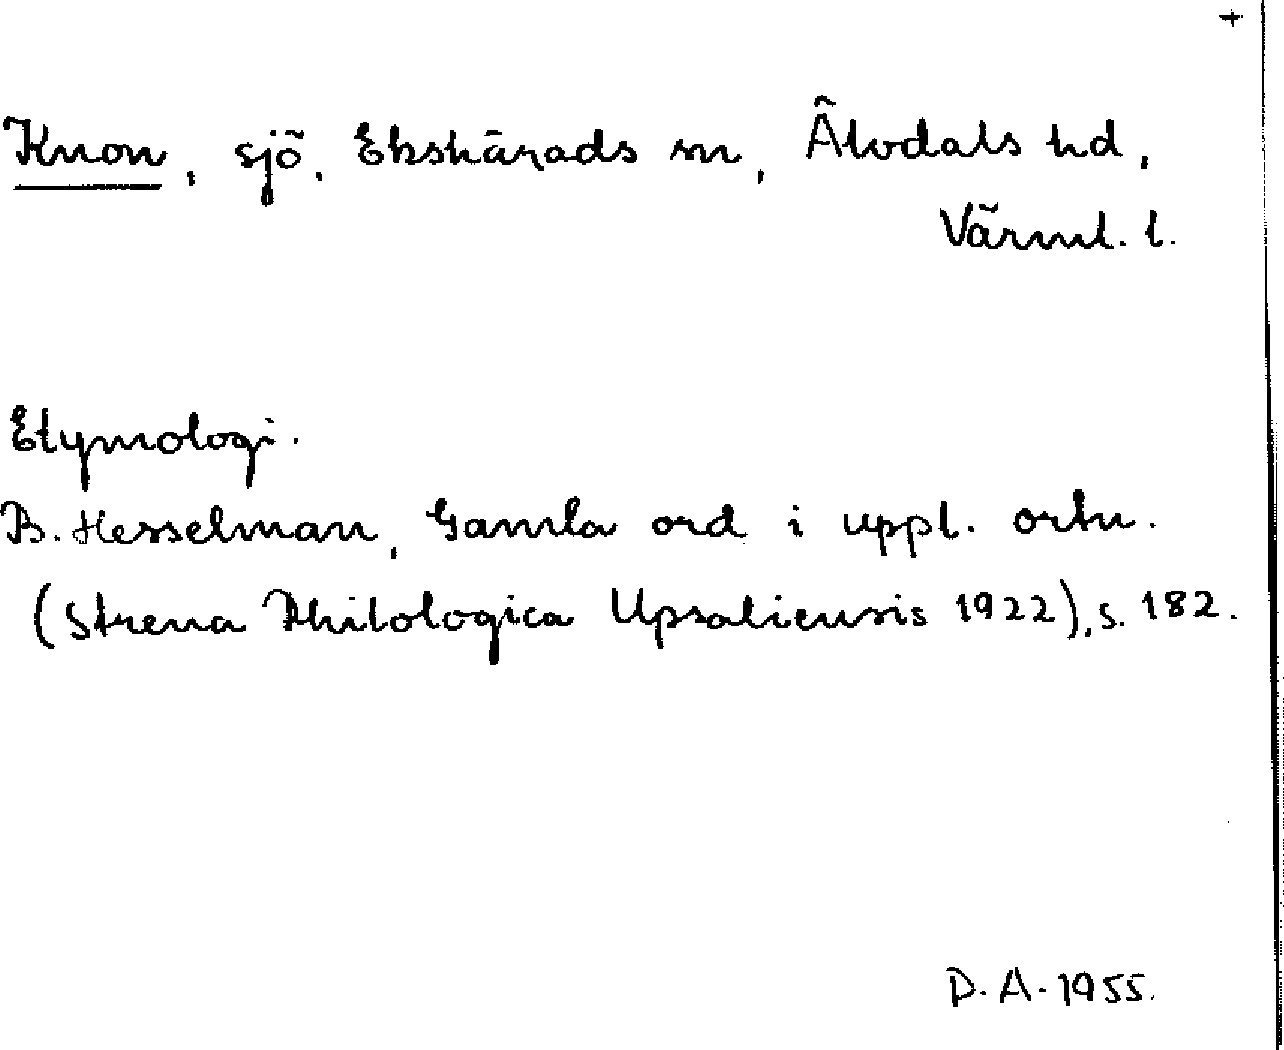 +
Knon, sjö, Ekshärads sn, Älvdals hd,
Värml. l.
Etymologi.
B. Hesselman, Gamla ord i uppl. ortn.
(Strena Philologica Upsaliensis 1922), s. 182.
D. A. 1955.